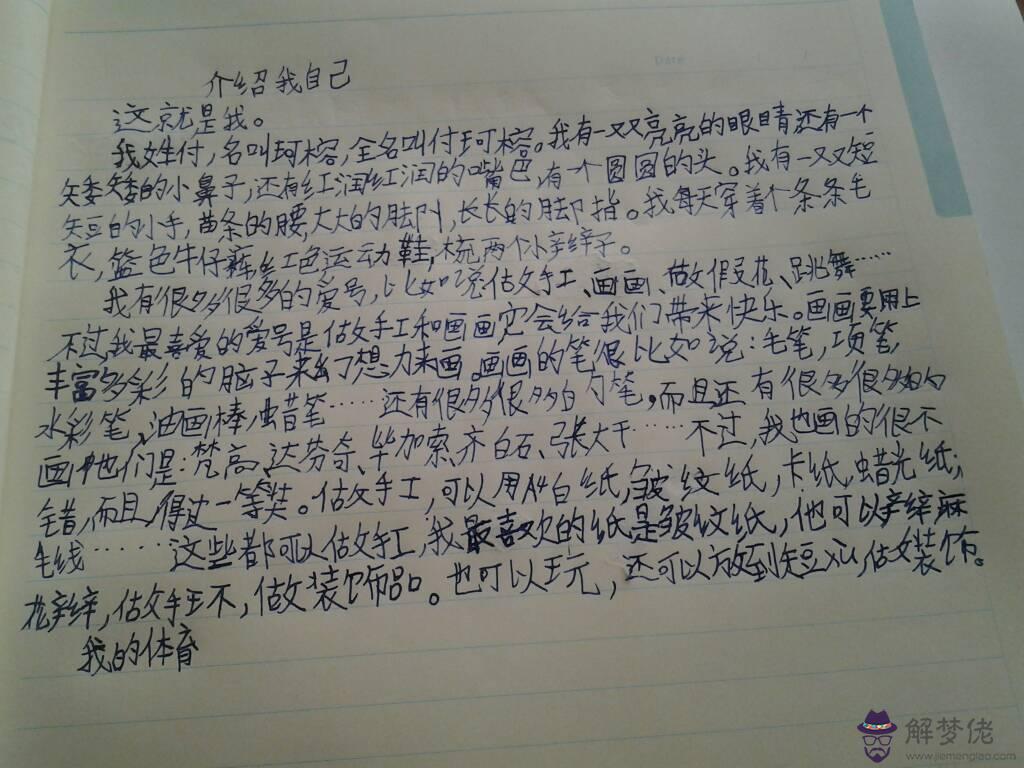 Date
介绍我自己
这就是我。
我姓付，名叫珂榕，全名叫付珂榕。我有一双亮亮的眼睛还有一个
矮矮的小鼻子，还有红润红润的嘴色，有一个圆圆的头。我有一双短
短的小手，曲条的腰，大大的脚，长长的脚指。我每天穿着个条条毛
衣，篮色牛仔裤，红色运动鞋，梳两个小辫子。
我有很多很多的爱号，比如说做手工、画画、做假花、跳舞……
不过，我最喜爱的爱号是做手工和画画它会给我们带来快乐。画画要用上
丰富多彩的脑子来幻想力来画。画画的笔很比如说：毛笔，项笔，
水彩笔，油画棒，蜡笔……还有很多很多的笔，而且还有很多很多的
画他们是：梵高、达芬奇、毕加索、齐白石、张大千……不过，我也画的很不
错，而且，得过一等奖。做手工，可以用A4白纸，皱纹纸，卡纸，蜡光纸；
毛线……这些都可以做手工，我最喜欢的纸是皱纹纸，他可以辫麻
花辫，做手工不，做装饰品。也可以玩，还可以放到，做装饰。
我的体育
解梦佬
www.jiemenglao.com